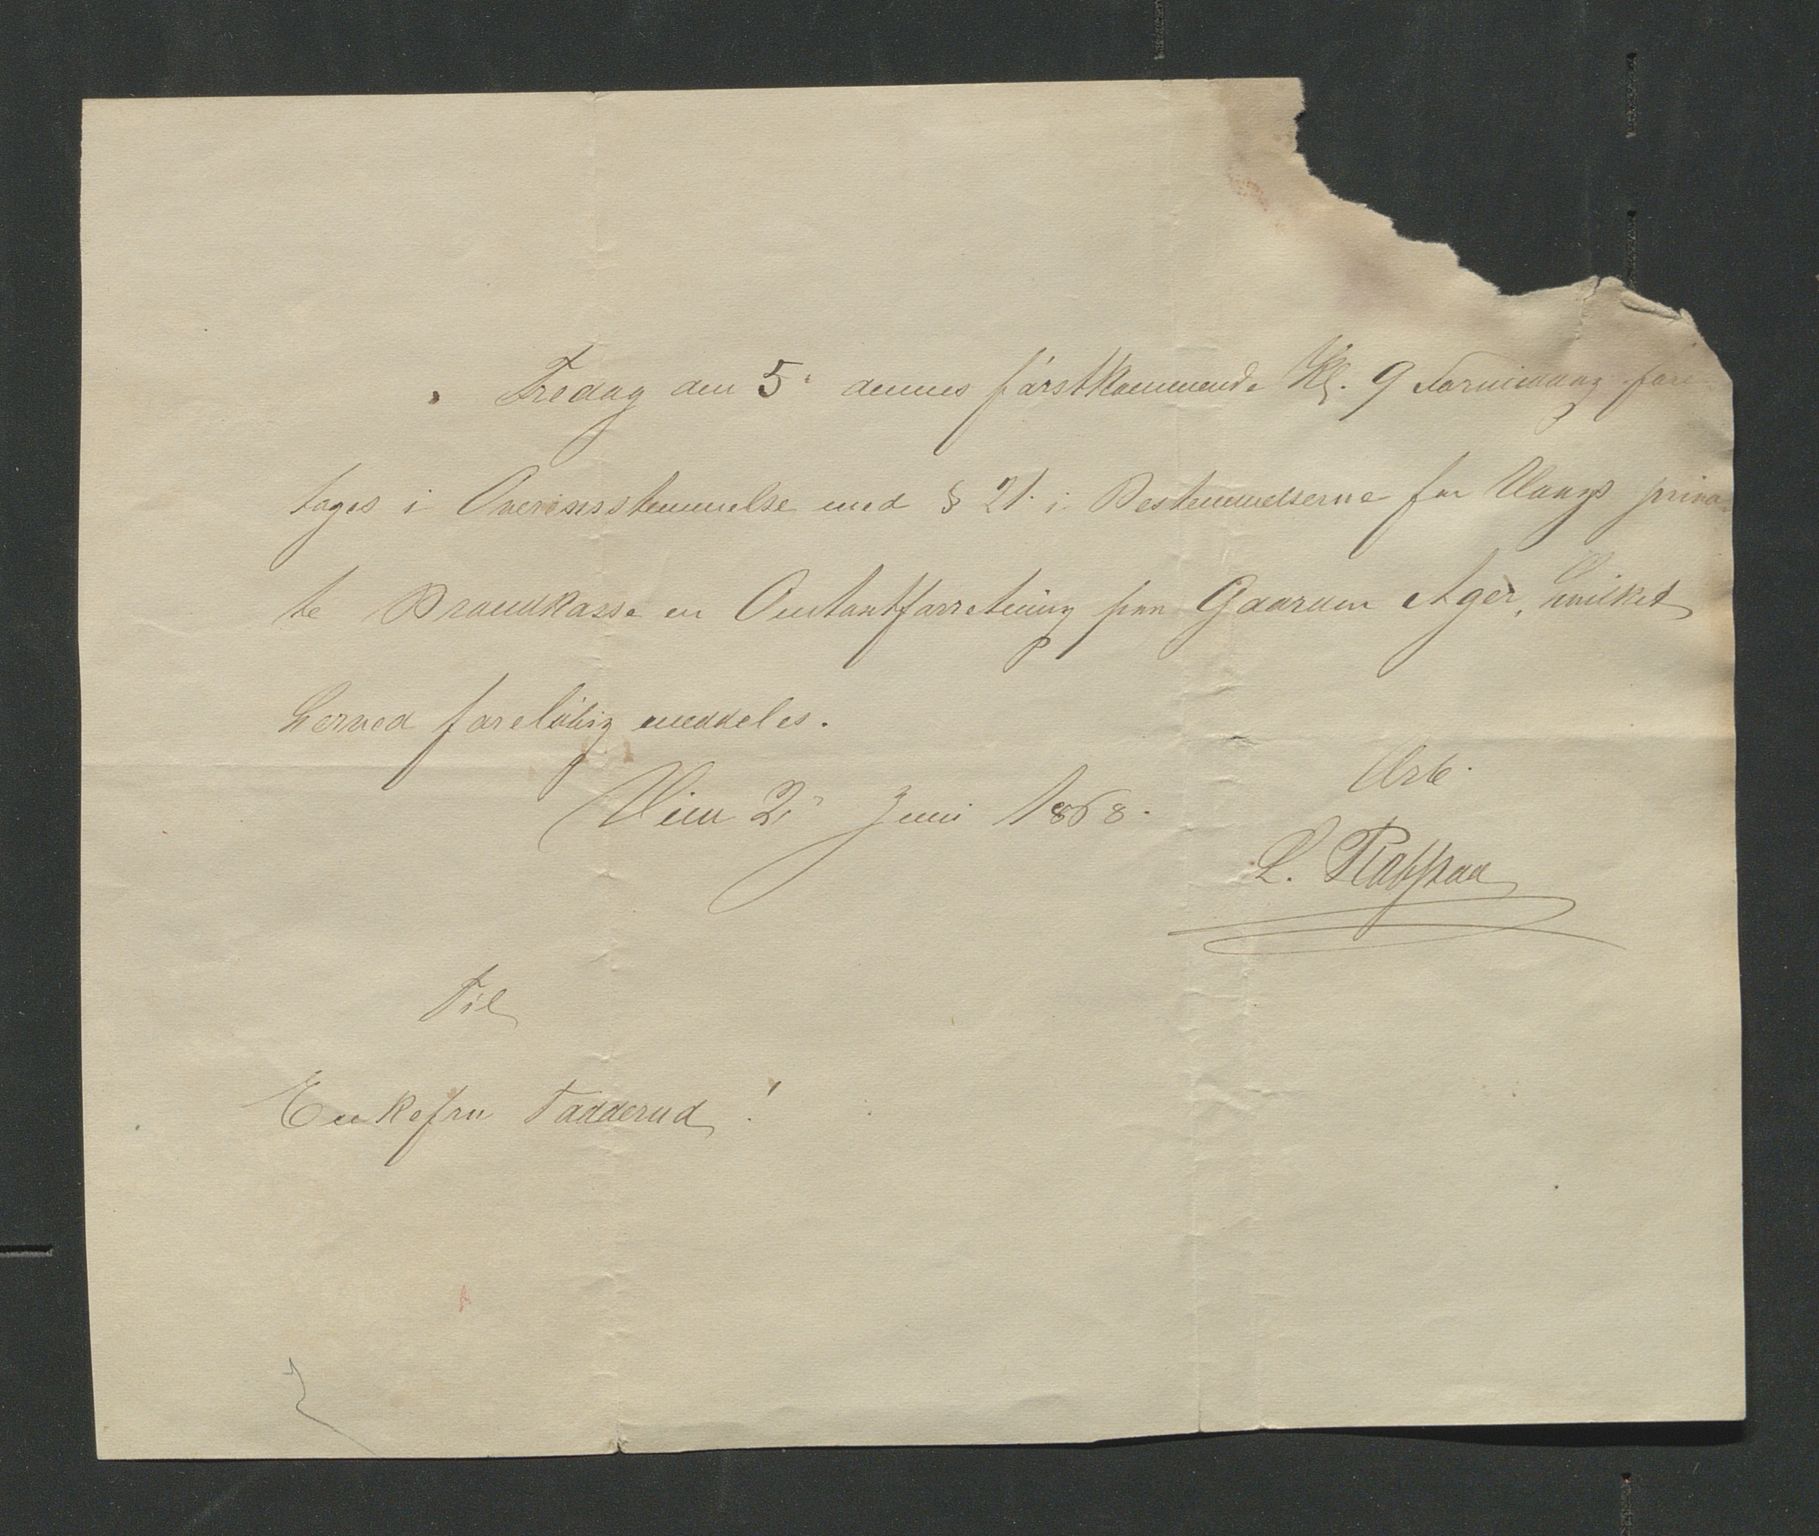 Fredag den 5' dennes førstkommende Kl. 9 Formiddag fore
tages i Overensstemmelse med § 21. i Bestemmelserne for Vangs priva-
te Brandkasse en Omtaxtforretning paa Gaarden Ager, hvilket
herved foreløbig meddeles.
Vien 2' Juni 1868.
Arb.
L.
Til
Enkefru Fadderud!